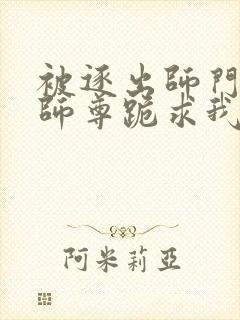 被逐出師門
師尊跪求我
阿米莉亞